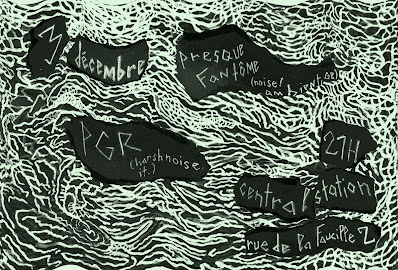 3
décembre
presque
Fantôme
(noise/
ambient.se)
PGR
(harshnoise,
it.)
21H
central station
rue de la Faucille 2